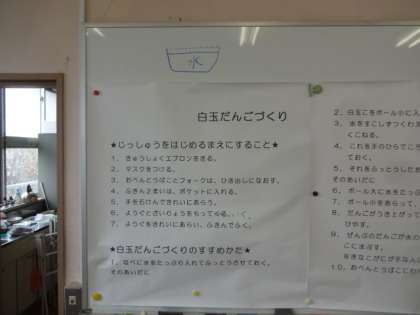 水
白玉だんごづくり
★じっしゅうをはじめるまえにすること★
1. きゅうしょくエプロンをきる。
2. マスクをつける。
3. おべんとうばことフォークは、ひき出しになおす。
4. ふきん2まいは、ポケットに入れる。
5. 手をわけんできれいにあらう。
6. ようぐとざいりょうをもって
7. ようぐをきれいにあらい、ふきんでふく。
★白玉だんごづくりのすすめかた★
1. なべに水をたっぷり入れてふっとうさせておく。
そのあいだに
2. 白玉こをボール小に入
3. 水をすこしずつくわえ
くこねる。
4. これを手のひらでころ
ておく。
5. それをふっとうした
そのあいだに
6. ボール大に水をたっぷ
7. ボール小をあらって、
8. だんごがうきとがって
ひやす。
9. ぜんぶのだんごが水の
こに
10. おべんとうばこに